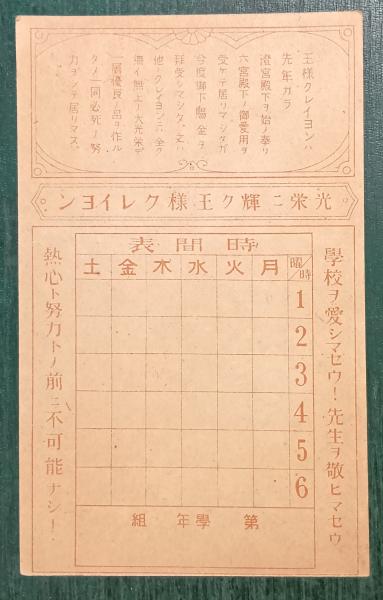 王様クレイヨンハ
先年カラ
澄宮殿下ヲ始メ奉リ
六宮殿下ノ御愛用ヲ
受ケテ居リマシタガ
今度御下賜金ヲ
拝受シマシタ。之ハ
他ノクレイヨンニ全ク
無イ無上ノ大光栄デ
一層優良ノ品ヲ作ル
タメ一同必死ノ努
力ヲシテ居リマス。
光栄ニ輝ク王様クレイヨン
學校ヲ愛シマセウ!先生ヲ敬ヒマセウ
時間表
曜/時 月 火 水 木 金 土
1
2
3
4
5
6
第 學年 組
熱心ト努力トノ前ニ不可能ナシ!